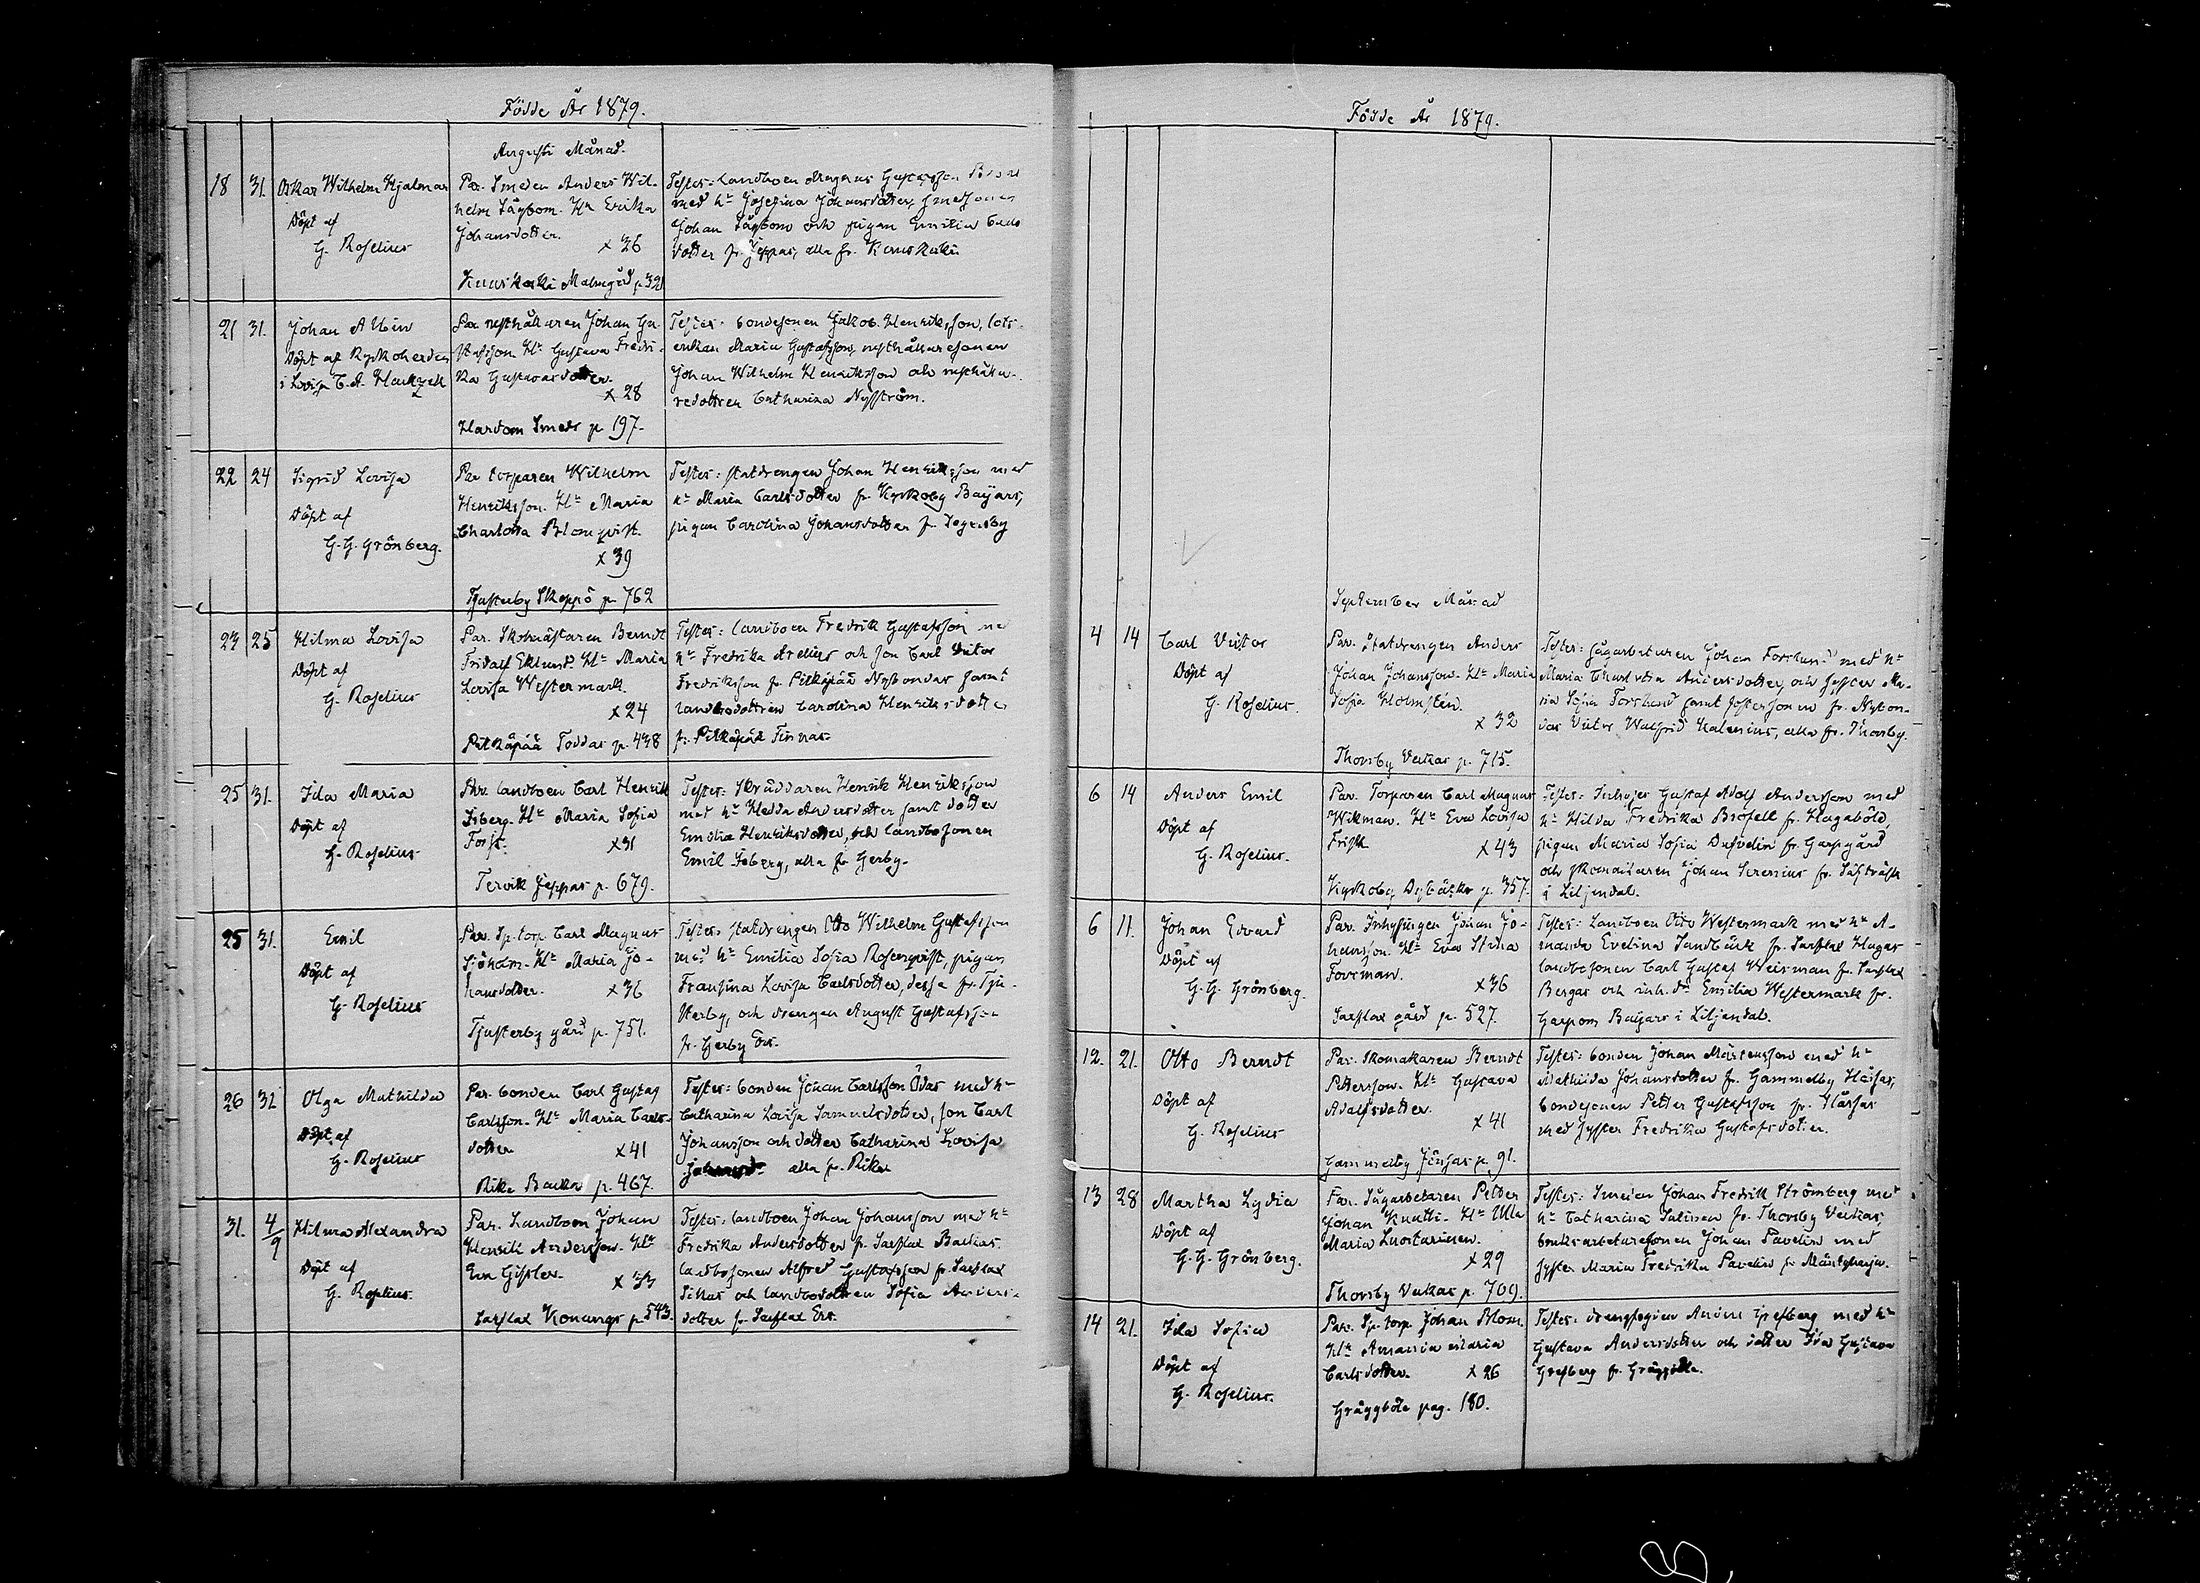 Födde År 1879.
Augusti Månad.
18 31. Oskar Wilhelm Hjalmar
Döpt af
G. Roselius
Par. Smeden Anders Wil-
helm Sågbom. Hn Erika
Johansdotter.
x 26
Kuuskoski Malmgård p. 321
Testes: Landboen Magnus Gustafsson
med hn Josefina Johansdotter, smedsonen
Johan Sågbom och pigan Emilia
dotter fr. Jeppas, alla fr. Kuuskoski
21 31. Johan Albin
Döpt af Kyrkoherden
i Lovisa C. A.
Par. rusthållaren Johan Gu-
stafsson Hn Gustava Fredri-
ka Gustavasdotter.
x 28
Hardom Smeds p. 197.
Testes: bondesonen Jakob Henriksson, lots-
enkan Maria Gustafsson, rusthållaresonen
Johan Wilhelm Henriksson och rusthålla-
redottren Catharina Nyström.
22 24 Sigrid Lovisa
Döpt af
G. G. Grönberg.
Par torparen Wilhelm
Henriksson. Hn Maria
Charlotta Blomqvist.
x 39
Tjusterby Skeppö p. 762
Testes: statdrengen Johan Henriksson med
hn Maria Carlsdotter fr. Kyrkoby Bajars,
pigan Carolina Johansdotter fr. Tegersby
23 25 Hilma Lovisa
Döpt af
G. Roselius
Par. Skolmästaren Berndt
Fridolf Eklund. Hn Maria
Lovisa Westermark.
x 24
Pitkäpää Toddas p. 438
Testes: landboen Fredrik Gustafsson me
hn Fredrika Arelius och son Carl Victor
Fredriksson fr. Pitkäpää Nybondas samt
landbodottren Carolina Henriksdotter
fr. Pitkäpää Finnas.
25 31. Ida Maria
Döpt af
G. Roselius
Par. landboen Carl Henrik
Isberg. Hn Maria Sofia
Forss.
x 31
Tervik Jeppas p. 679.
Testes: Skräddaren Henrik Henriksson
med hn Hedda Andersdotter samt dotter
Emilia Henriksdotter, och landbosonen
Emil Isberg, alla fr. Gerby.
25 31. Emil
Döpt af
G. Roselius
Par. Sp. torp. Carl Magnus
Sjöholm. Hn Maria Jo-
hansdotter.
x 36
Tjusterby gård p. 751.
Testes: statdrengen Otto Wilhelm Gustafsson
med hn Emilia Sofia Rosenqvist, pigan
Fransina Lovisa Carlsdotter, dessa fr. Tju-
sterby, och drengen August Gustafsson
fr. Gerby
26 31 Olga Mathilda
Döpt af
G. Roselius
Par. bonden Carl Gustaf
Carlsson. Hn Maria Carls-
dotter
x 41
Rike Backa p. 467.
Testes: bonden Johan Carlsson Ödas med hn
Catharina Lovisa Samuelsdotter, son Carl
Johansson och dotter Catharina Lovisa
alla fr. Rike
31. 4/9 Hilma Alexandra
Döpt af
G. Roselius.
Par. Landboen Johan
Henrik Andersson. Hn
Eva Gissler.
x 33
Sarflax Konungs p. 543.
Testes: landboen Johan Johansson med hn
Fredrika Andersdotter fr. Sarflax Backas.
landbosonen Alfred Gustafsson fr. Sarflax
Sikas och landbodottren Sofia Anders-
dotter fr. Sarflax Ers.
Födde År 1879.
September Månad
4 14 Carl Victor
Döpt af
G. Roselius.
Par. Statdrengen Anders
Johan Johansson. Hn Maria
Sofia Holmstén.
x 32
Thorsby Veckas p. 715.
Testes: Sågarbetaren Johan Forslund med hn
Maria Charlotta Andersdotter, och syster Ma-
ria Sofia Forslund samt fostersonen fr. Nybon-
das Victor Walfrid Kalenius, alla fr. Thorsby.
6 14 Anders Emil
Döpt af
G. Roselius.
Par. Torparen Carl Magnus
Wikman. Hn Eva Lovisa
Frisk
x 43
Kyrkoby Dybäcks p. 357.
Testes: Inhyses Gustaf Adolf Andersson med
hn Hilda Fredrika Brofelt fr. Hagaböle,
pigan Maria Sofia Dufvelin fr. Garpgård
och skomakaren Johan Serenius fr. Säfträsk
i Liljendal.
6 11. Johan Evard
Döpt af
G. G. Grönberg.
Par. Inhysingen Johan Jo-
hansson. Hn Eva Stina
Forsman.
x 36
Sarflax gård p. 527.
Testes: Landboen Otto Westermark med hn A-
manda Evelina Sundbäck fr. Sarflax Hagas
landbosonen Carl Gustaf Weisman fr. Sarflax
Bergas och inh. dr. Emilia Westermark fr.
Garpom Bajars i Liljendal.
12. 21. Otto Berndt
Döpt af
G. Roselius
Par. Skomakaren Berndt
Pettersson. Hn Gustava
Adolfsdotter.
x 41
Gammelby Jönsas p. 91.
Testes: bonden Johan Mårtensson med hn
Mathilda Johansdotter fr. Gammelby Hässas,
bondesonen Petter Gustafsson fr. Hässas
med syster Fredrika Gustafsdotter.
13 28 Martha Lydia
Döpt af
G. G. Grönberg.
Par. Sågarbetaren Petter
Johan Knutti. Hn Ulla
Maria Luostarinen.
x 29
Thorsby Veckas p. 709.
Testes: Smeden Johan Fredrik Strömberg med
hn Catharina Salinen fr. Thorsby Veckas,
bruksarbetaresonen Johan Pavelin med
syster Maria Fredrika Pavelin fr.
14 21. Ida Sofia
Döpt af
G. Roselius.
Par. Sp. torp. Johan Blom
Hn Amanda Maria
Carlsdotter.
x 26
Gräggböle pag. 180.
Testes: Anders Grefberg med hn
Gustava Andersdotter och dotter Ida Gustava
Grefberg fr. Gräggböle.